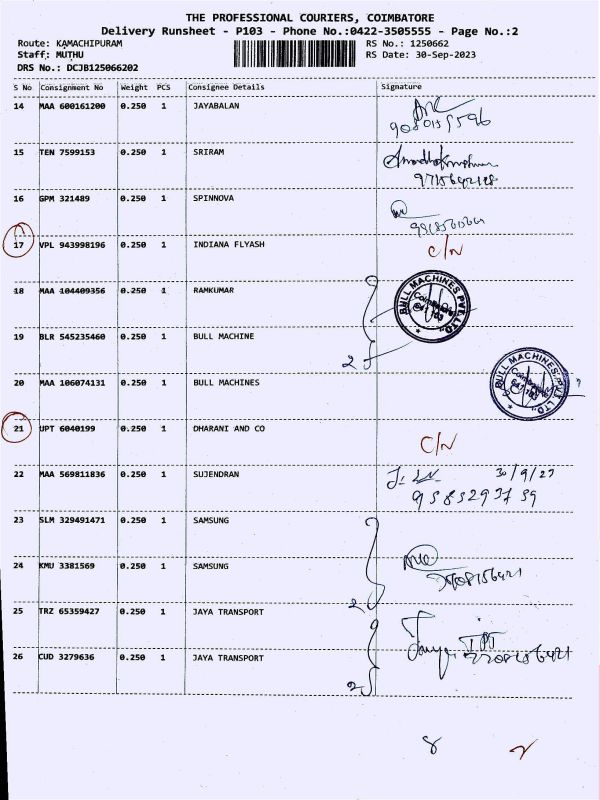 THE PROFESSIONAL COURIERS, COIMBATORE
Delivery Runsheet - P103 - Phone No.:0422-3505555 - Page No.:2
Route: KAMACHIPURAM RS No.: 1250662
Staff: MUTHU RS Date: 30-Sep-2023
DRS No.: DCJB125066202
S No Consignment No Weight PCS Consignee Details Signature
14 MAA 600161200 0.250 1 JAYABALAN
15 TEN 7599153 0.250 1 SRIRAM
16 GPM 321489 0.250 1 SPINNOVA
17 VPL 943998196 0.250 1 INDIANA FLYASH C/N
18 MAA 104409356 0.250 1 RAMKUMAR
BULL MACHINES PVT. LTD.,
19 BLR 545235460 0.250 1 BULL MACHINE
2
20 MAA 106074131 0.250 1 BULL MACHINES
BULL MACHINES PVT. LTD.,
21 UPT 6040199 0.250 1 DHARANI AND CO C/N
22 MAA 569811836 0.250 1 SUJENDRAN
23 SLM 329491471 0.250 1 SAMSUNG
24 KMU 3381569 0.250 1 SAMSUNG
2
25 TRZ 65359427 0.250 1 JAYA TRANSPORT
26 CUD 3279636 0.250 1 JAYA TRANSPORT
2
8 2